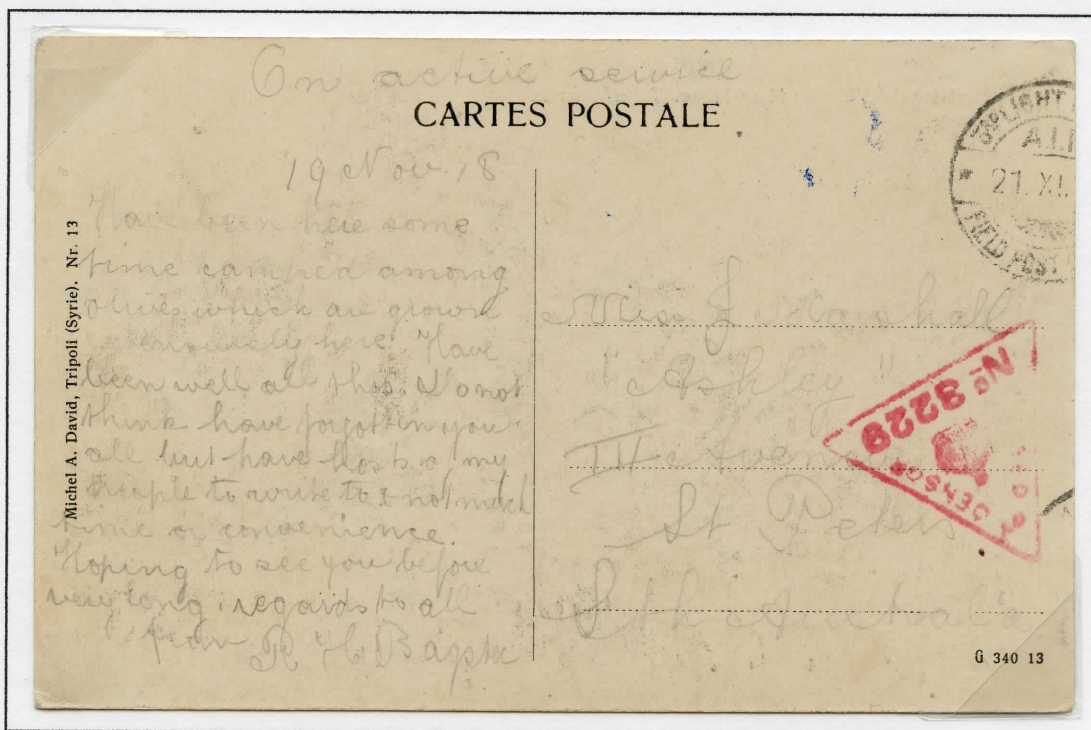 On active service
CARTES POSTALE
19 Nov 18
Have been here some
time camped among
olives which are grown
here Have
been well all this. Do not
think have forgotten you
all but have hosts of my
people to write to & not much
time or convenience.
Hoping to see you before
very long, regards to all
from R H Bagster
Michel A. David, Tripoli (Syrie). Nr. 13
Miss J. Marshall
"Ashley"
III Avenue
St Peters
Sth Australia
LIGHT
A.I.F
21. XI.
FIELD POST
CENSOR
No 3229
G 340 13